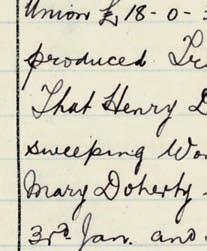 Union £ 18 - 0 -
produced
That Henry
sweeping
Mary Doherty
3rd Jan. and